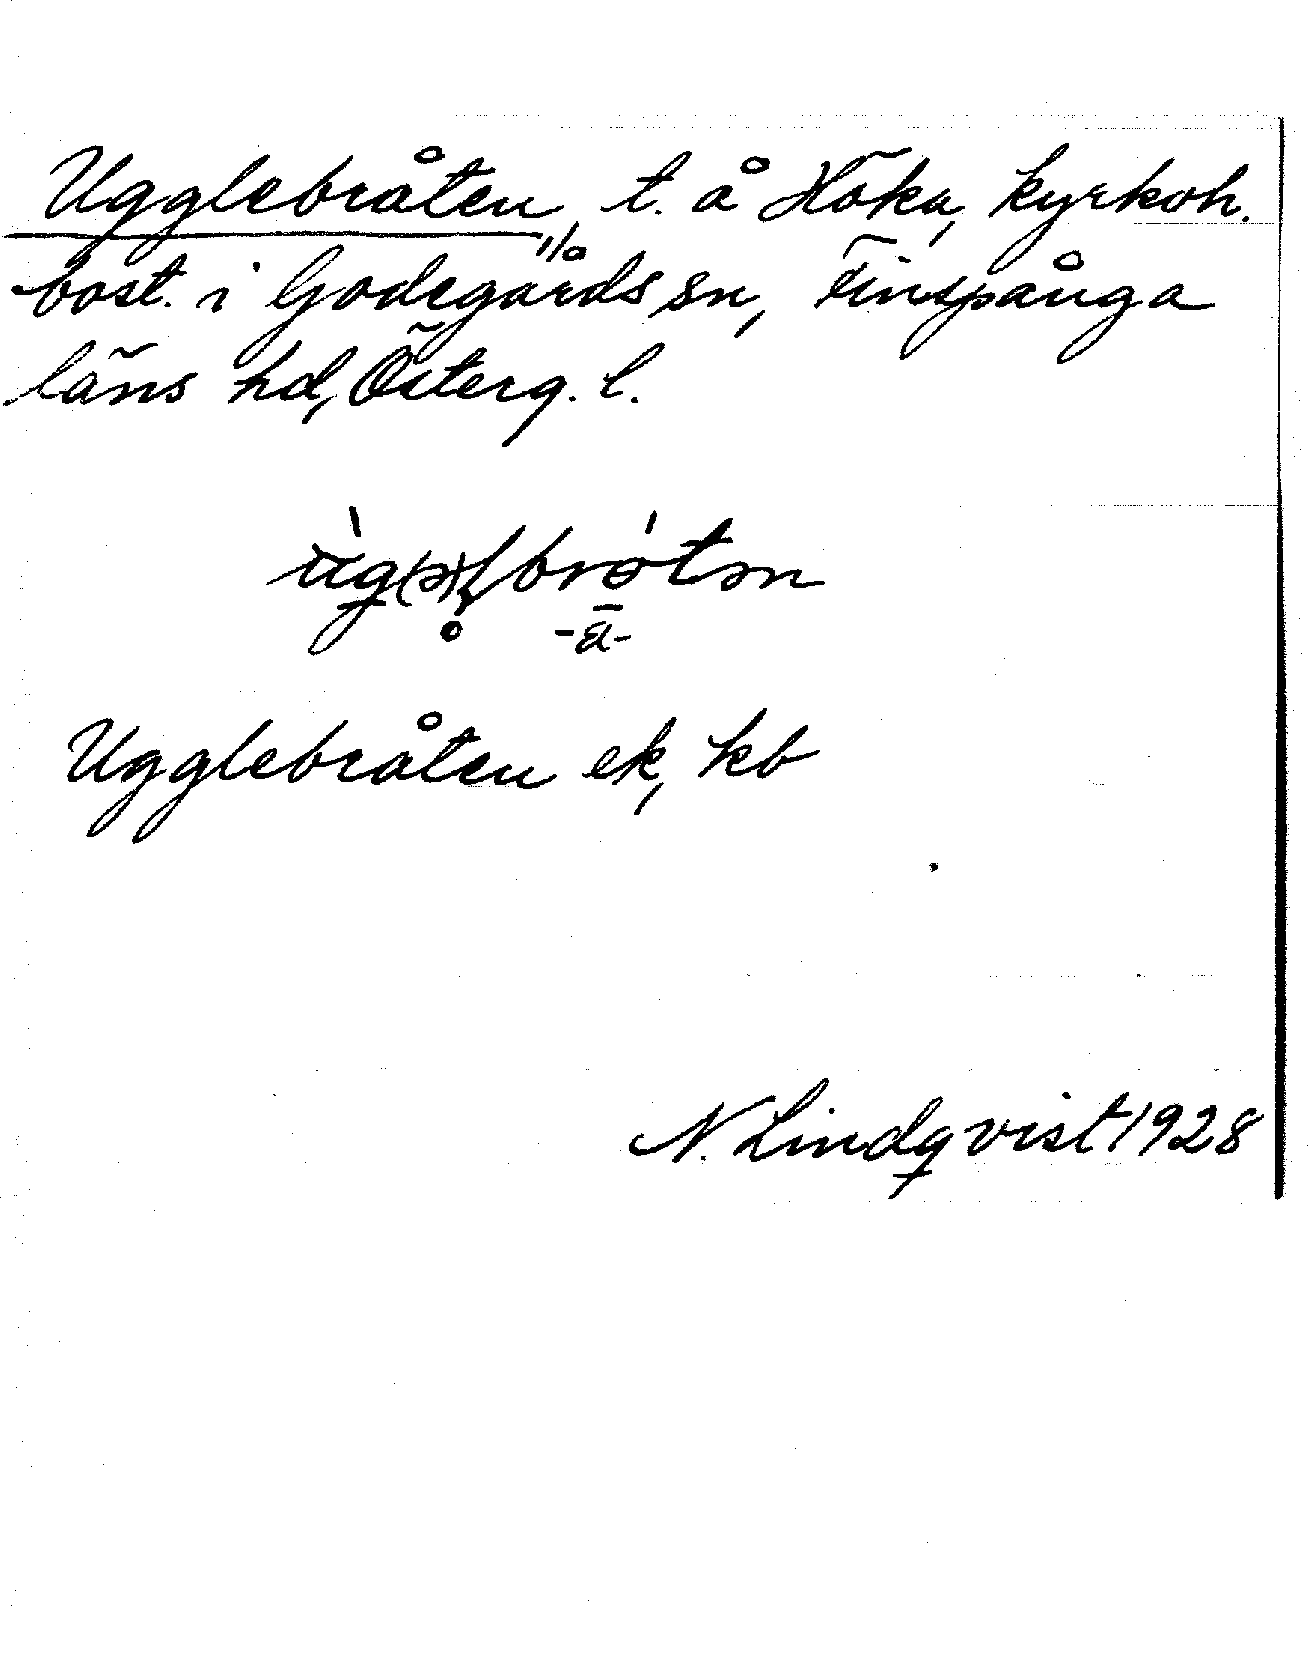 Ugglebråten, t. å Höka, kyrkoh.
bost. i Godegårds sn, Finspånga
läns hd, Österg. l.
ùg(ə)l̥brótən
-ā-
Ugglebråten ek, kb
N. Lindqvist 1928